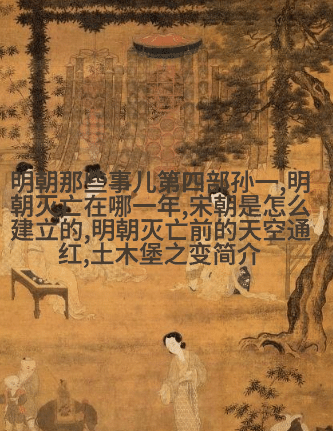 明朝那些事儿第四部孙一,明
朝灭亡在哪一年,宋朝是怎么
建立的,明朝灭亡前的天空通
红,土木堡之变简介